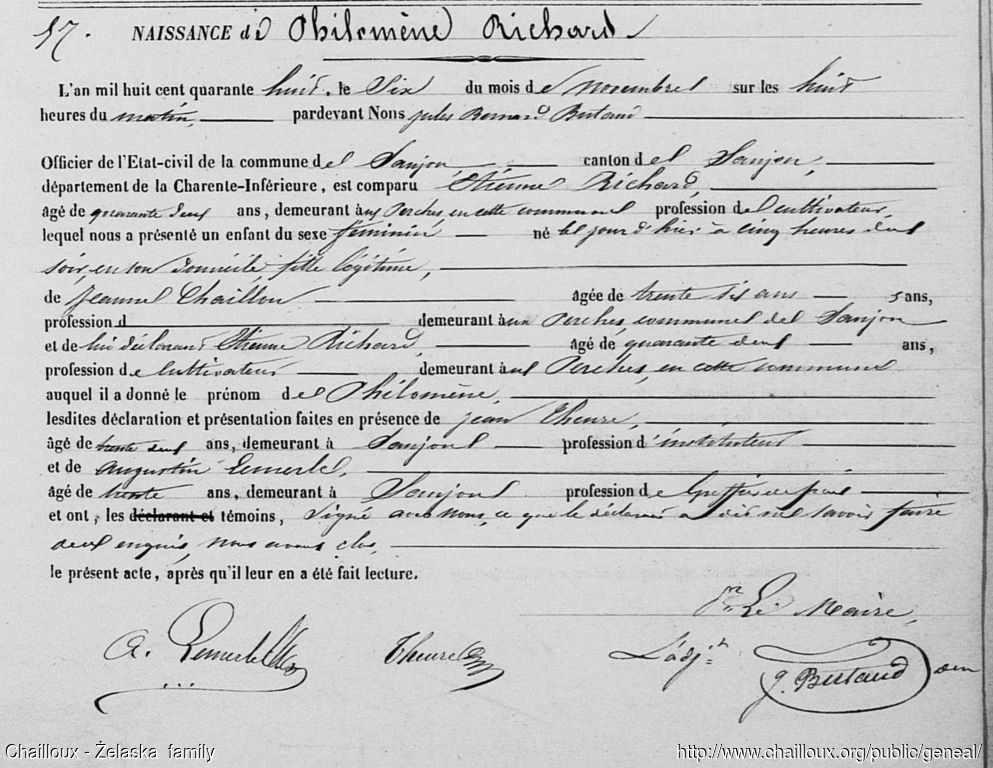 57. NAISSANCE de Philomène Richard
L'an mil huit cent quarante huit, le Six du mois de novembre sur les huit
heures du matin, pardevant Nous jules Bernard Bertaud
Officier de l'Etat-civil de la commune de Saujon, canton de Saujon,
département de la Charente-Inférieure, est comparu Etienne Richard,
âgé de quarante deux ans, demeurant aux Perches, en cette commune profession de cultivateur,
lequel nous a présenté un enfant du sexe féminin né le jour d'hier à cinq heures du
soir, en son domicile, fille légitime,
de Jeanne Chaillou âgée de trente six ans ans,
profession d demeurant aux Perches, commune de Saujon
et de lui déclarant Etienne Richard, âgé de quarante deux ans,
profession de Cultivateur demeurant aux Perches, en cette commune
auquel il a donné le prénom de Philomène,
lesdites déclaration et présentation faites en présence de jean Theure,
âgé de trente deux ans, demeurant à Saujon profession d'instituteur
et de augustin Lemerle,
âgé de trente ans, demeurant à Saujon profession de Greffier de paix
et ont, les déclarant et témoins, signé avec nous, ce que le déclarant a dit ne savoir faire
de ce enquis, nous avons clos,
le présent acte, après qu'il leur en a été fait lecture.
Pr. Le Maire,
A. Lemerle Theure L'adjt J. Bertaud
Chailloux - Želaska family http://www.chailloux.org/public/geneal/